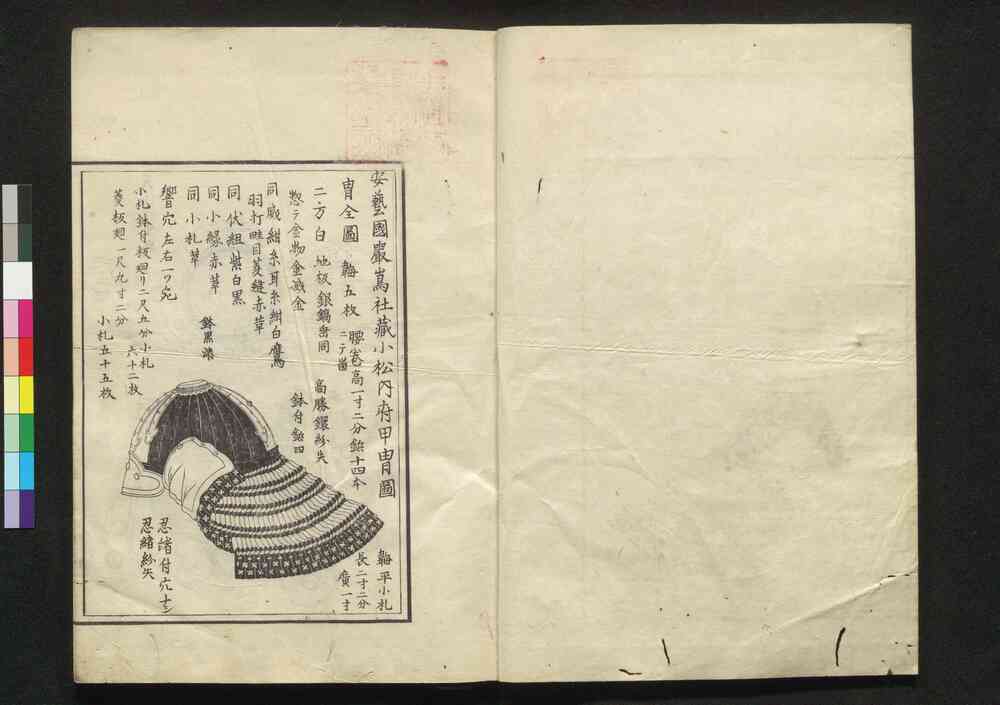 安藝國嚴嶌社藏小松内府甲冑圖
冑全圖
鞠五枚
腰卷高一寸二分鋲十四本
二方白
地板銀鍋岀同
高勝鐶紛失
惣テ金物金滅金
鉢付鋲四
同威紺糸耳糸紺白鷹
羽打畦目菱縫赤革
同伏組紫白黒
同小縁赤革
同小札革
鉢黒漆
響穴左右一ツ宛
小札鉢付板廻リ二尺五分小札
六十二枚
菱板廻一尺九寸二分
小札五十五枚
平小札
長二寸二分
廣一寸
忍緒付穴十
忍緒紛失